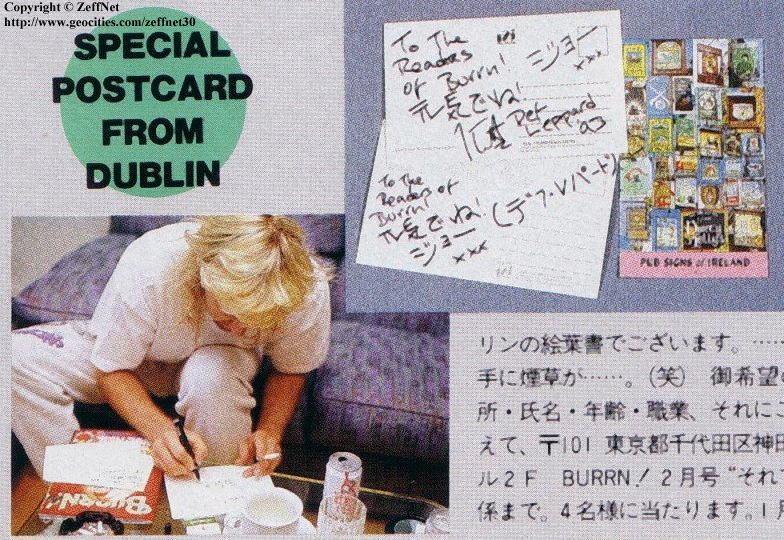 Copyright © ZeffNet
http://www.geocities.com/zeffnet30
SPECIAL
POSTCARD
FROM
DUBLIN
To The
Readers
of Burrn!
元気でね!
ジョー
xxx
Def
Leppard
'93
To The
Readers of
Burrn!
元気でね!
ジョー (デフ・レパード)
xxx
PUB SIGNS of IRELAND
BURRN
リンの絵葉書でございます。……
手に煙草が……。(笑) 御希望
所・氏名・年齢・職業、それに
えて、〒101 東京都千代田区神田
ル2F BURRN! 2月号“それ
係まで。4名様に当たります。1月